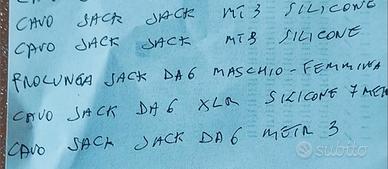 CAVO JACK JACK MT 3 SILICONE
CAVO JACK JACK MT3 SILICONE
PROLUNGA JACK DA 6 MASCHIO - FEMMINA
CAVO JACK DA 6 XLR SILICONE 7 MET
CAVO JACK JACK DA 6 METR 3
subito